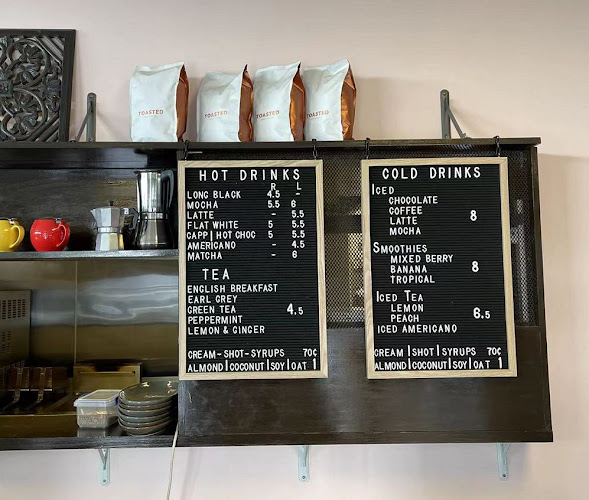 TOASTED
TOASTED
TOASTED
TOASTED
HOT DRINKS
R L
LONG BLACK 4.5 -
MOCHA 5.5 6
LATTE - 5.5
FLAT WHITE 5 5.5
CAPP|HOT CHOC 5 5.5
AMERICANO - 4.5
MATCHA - 6
TEA
ENGLISH BREAKFAST
EARL GREY
GREEN TEA 4.5
PEPPERMINT
LEMON & GINGER
CREAM-SHOT-SYRUPS 70¢
ALMOND|COCONUT|SOY|OAT 1
COLD DRINKS
ICED
CHOCOLATE
COFFEE 8
LATTE
MOCHA
SMOOTHIES
MIXED BERRY
BANANA 8
TROPICAL
ICED TEA
LEMON 6.5
PEACH
ICED AMERICANO
CREAM|SHOT|SYRUPS 70¢
ALMOND|COCONUT|SOY|OAT 1